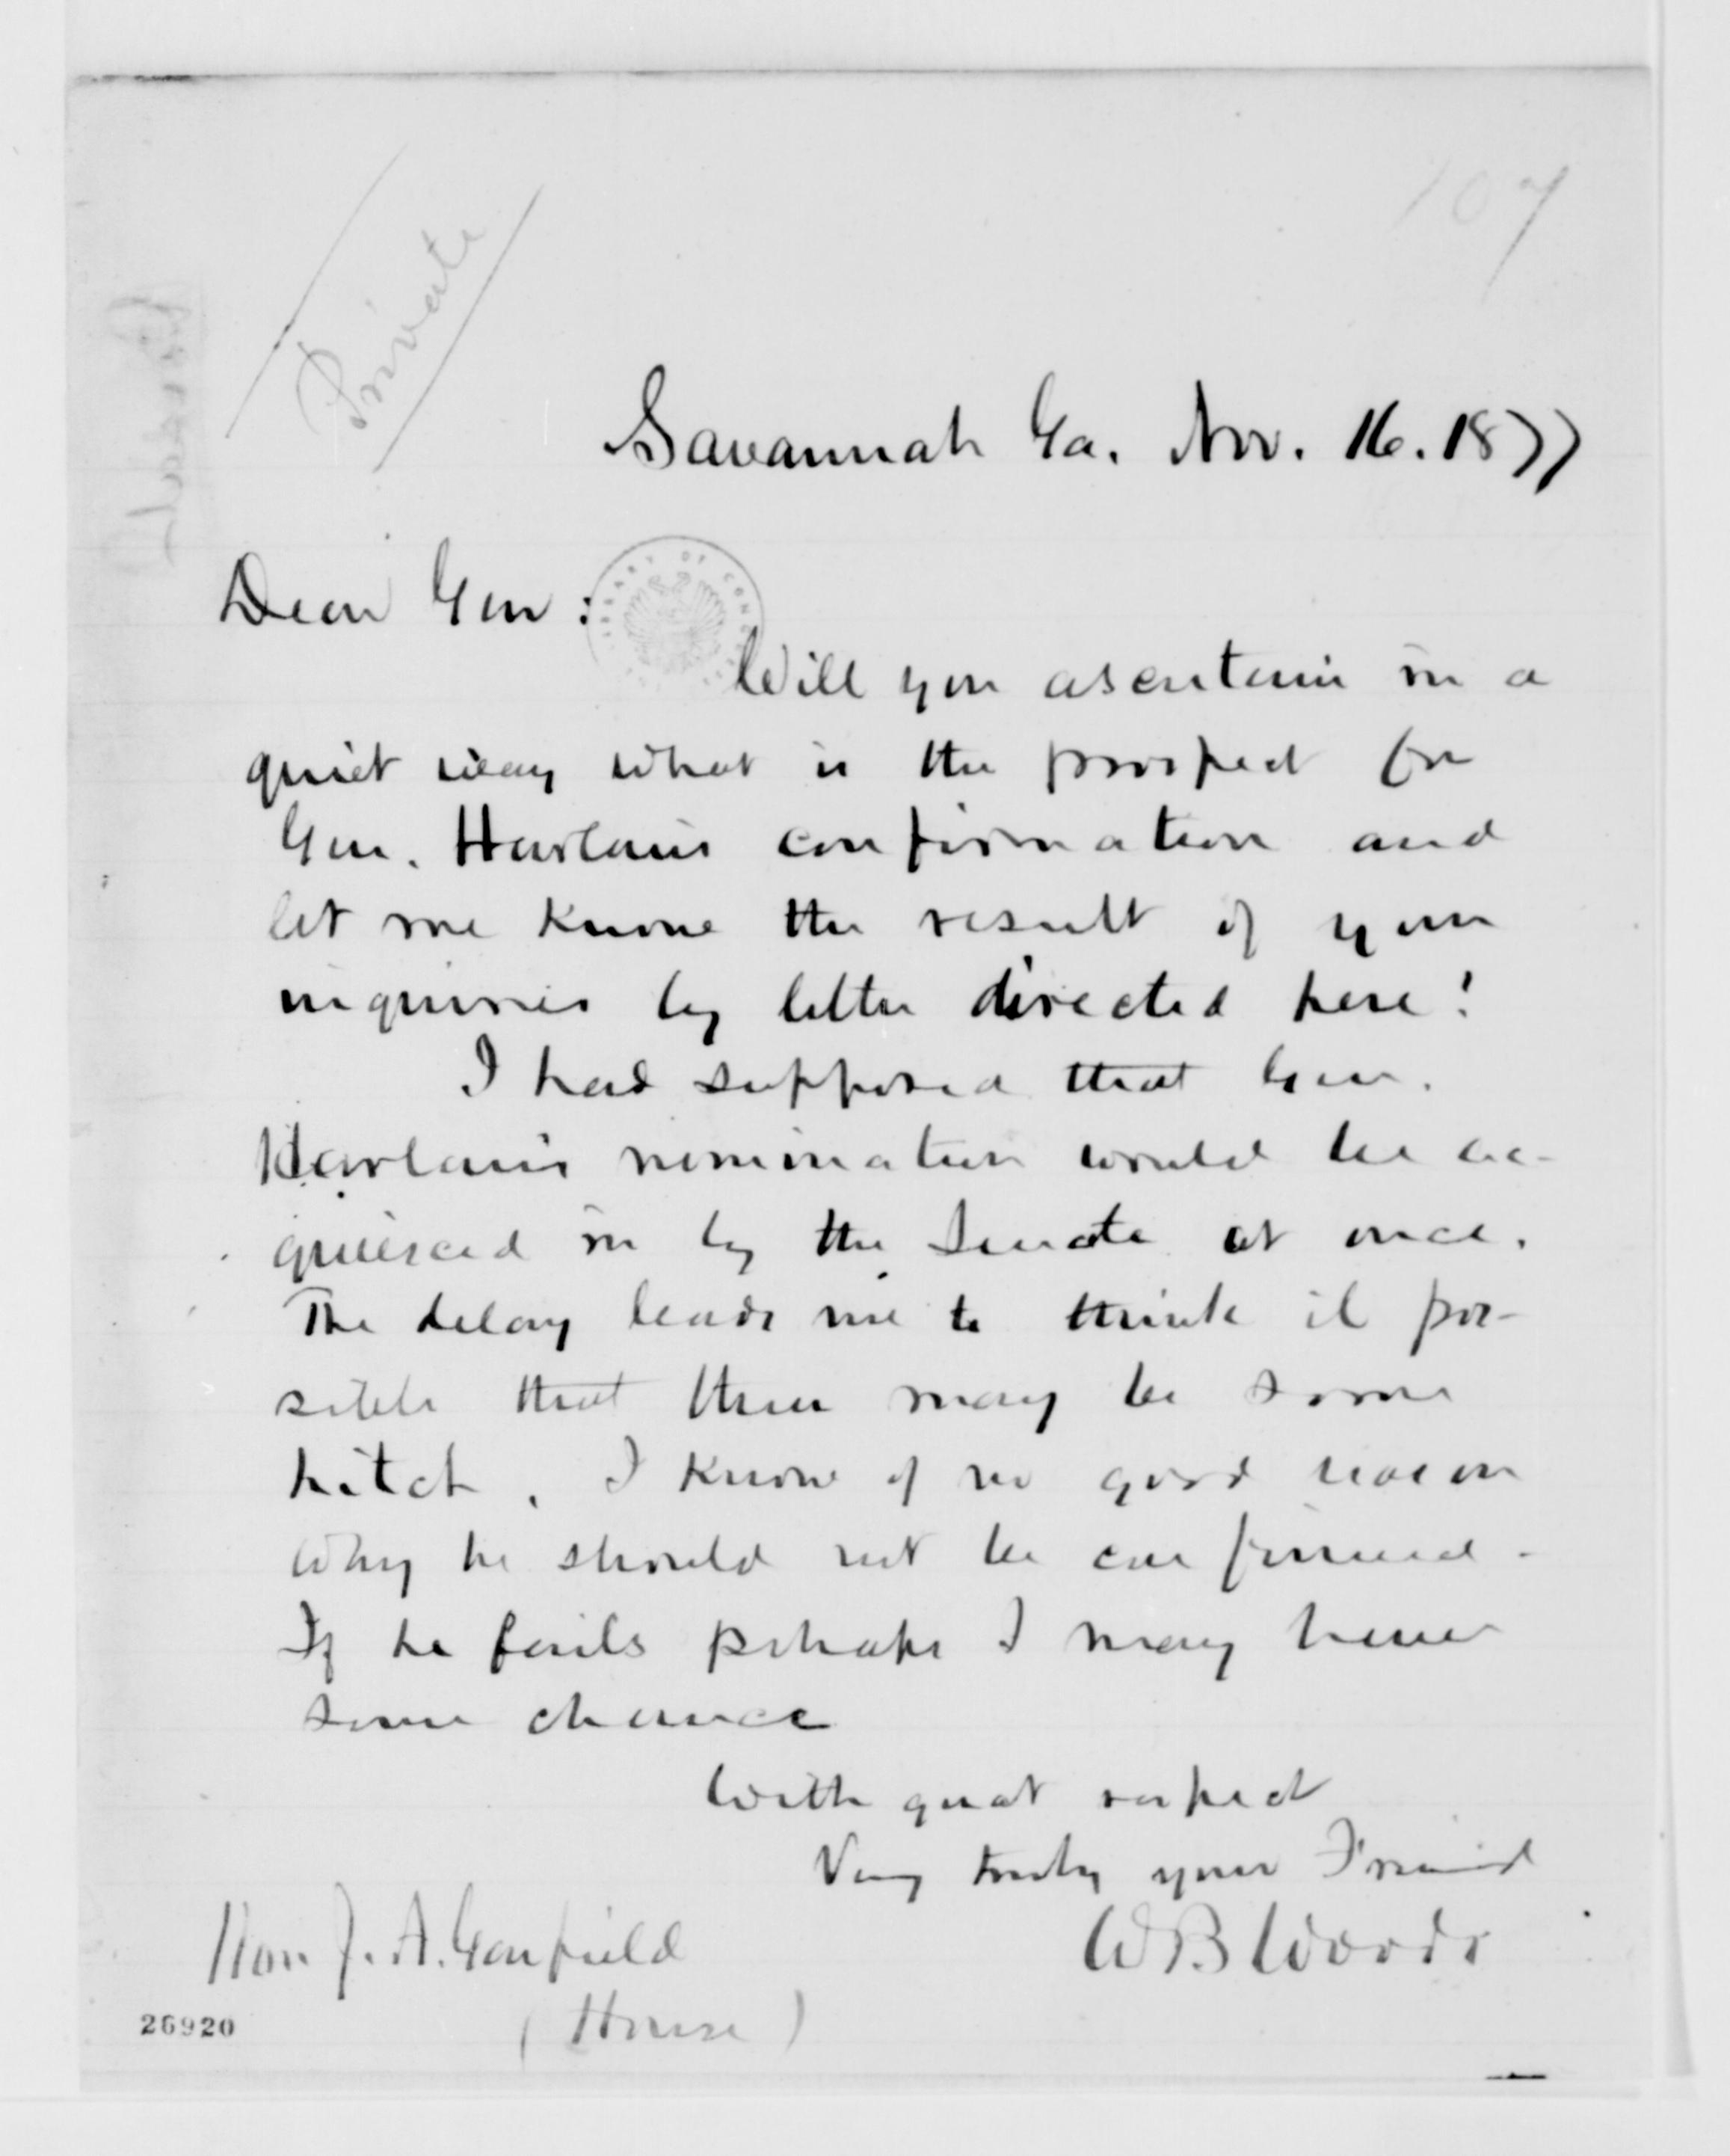 107
Private
Savannah Ga. Nov. 16. 1877
Dear Gen:
LIBRARY OF CONGRESS
Will you ascertain in a
quiet way what is the prospect for
Gen. Harlans confirmation and
let me know the result of your
inquiries by letter directed here!
I had supposed that Gen.
Harlans nomination would be ac-
quiesced in by the Senate at once.
The delay leads me to think it pos-
sible that there may be some
hitch. I know of no good reason
why he should not be confirmed.
If he fails perhaps I may have
some chance
With great respect
Very truly your Friend
W B Woods
Hon J. A. Garfield
(House)
26920